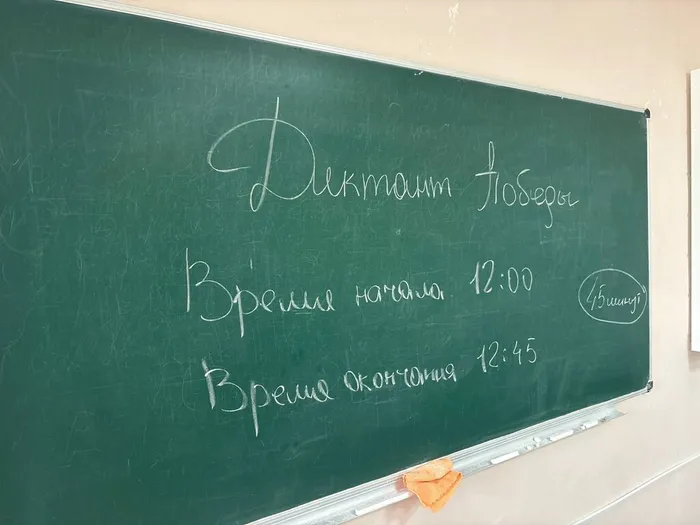 Диктант Победы
Время начала 12:00
45 минут
Время окончания 12:45